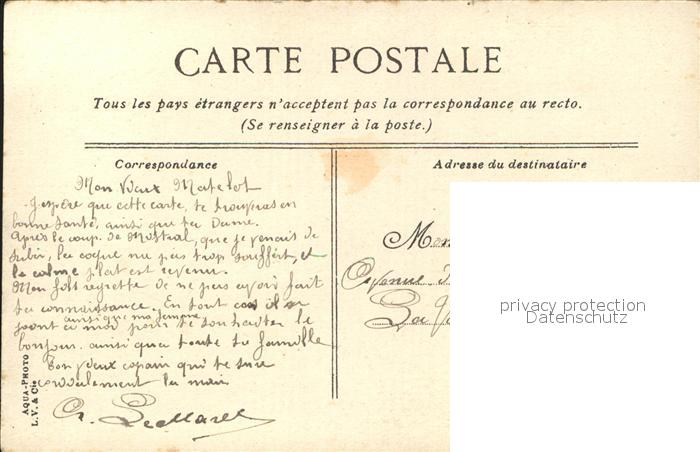 CARTE POSTALE
Tous les pays étrangers n'acceptent pas la correspondance au recto.
(Se renseigner à la poste.)
Correspondance
Adresse du destinataire
Mon vieux Matelot
J'espère que cette carte, te trouveras en
bonne santé, ainsi que ta Dame.
Après le coup de Mistral, que je venait de
subir, la coque n'a pas trop souffert, et
le calme plat est revenu.
Mon fils regrette de ne pas avoir fait
ta connaissance. En tout cas il se
joint a moi pour te souhaiter le
ainsi que ma femme
bonjour. ainsi qu'a toute ta famille
Ton vieux copain qui te serre
cordialement la main
Mon
Avenue
La
privacy protection
Datenschutz
AQUA-PHOTO
L. V. & Cie